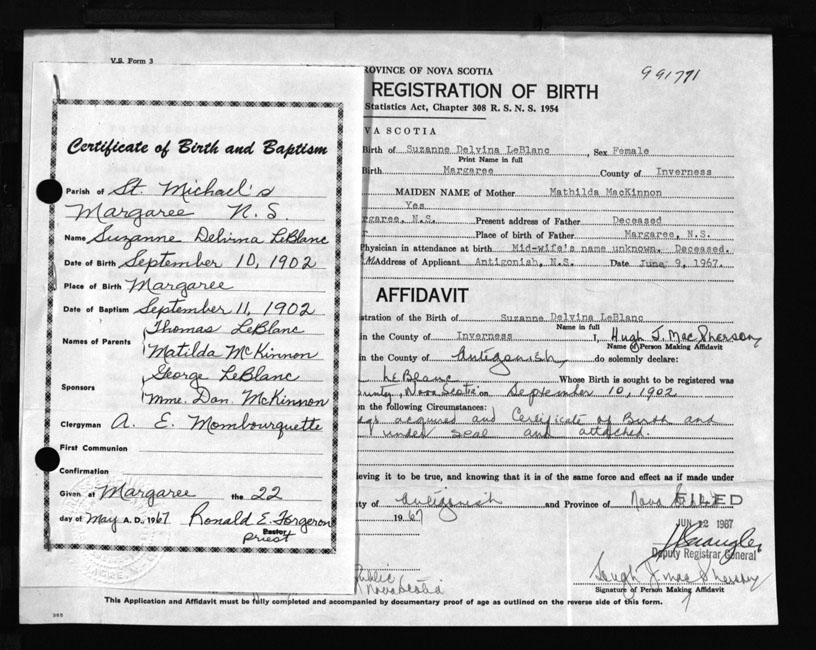 V.S. Form 3
Certificate of Birth and Baptism
Parish of St. Michael's
Margaree N.S.
Name Suzanne Delvina LeBlanc
Date of Birth September 10, 1902
Place of Birth Margaree
Date of Baptism September 11, 1902
Names of Parents Thomas LeBlanc
Matilda McKinnon
Sponsors George LeBlanc
Mme. Dan. McKinnon
Clergyman A. E. Mombourquette
First Communion
Confirmation
Given at Margaree the 22
day of May A. D., 1967 Ronald E. Forgeron
Pastor
Priest
ROVINCE OF NOVA SCOTIA
991771
REGISTRATION OF BIRTH
Statistics Act, Chapter 308 R. S. N. S. 1954
VA SCOTIA
Birth of Suzanne Delvina LeBlanc, Sex Female
Print Name in full
Birth Margaree County of Inverness
MAIDEN NAME of Mother Mathilda MacKinnon
Yes
rgaree, N.S. Present address of Father Deceased
Place of birth of Father Margaree, N.S.
Physician in attendance at birth Mid-wife's name unknown. Deceased.
Address of Applicant Antigonish, N.S. Date June 9, 1967.
AFFIDAVIT
stration of the Birth of Suzanne Delvina LeBlanc
Name in full
in the County of Inverness I, Hugh J. MacPherson
Name of Person Making Affidavit
in the County of Antigonish do solemnly declare:
LeBlanc Whose Birth is sought to be registered was
Nova Scotia on September 10, 1902
on the following Circumstances:
acquired and Certificate of Birth and
under seal and attached.
ieving it to be true, and knowing that it is of the same force and effect as if made under
ty of Antigonish and Province of Nova
FILED
1967
JUN 12 1967
Deputy Registrar General
Public
Nova Scotia
Hugh J. MacPherson
Signature of Person Making Affidavit
This Application and Affidavit must be fully completed and accompanied by documentary proof of age as outlined on the reverse side of this form.